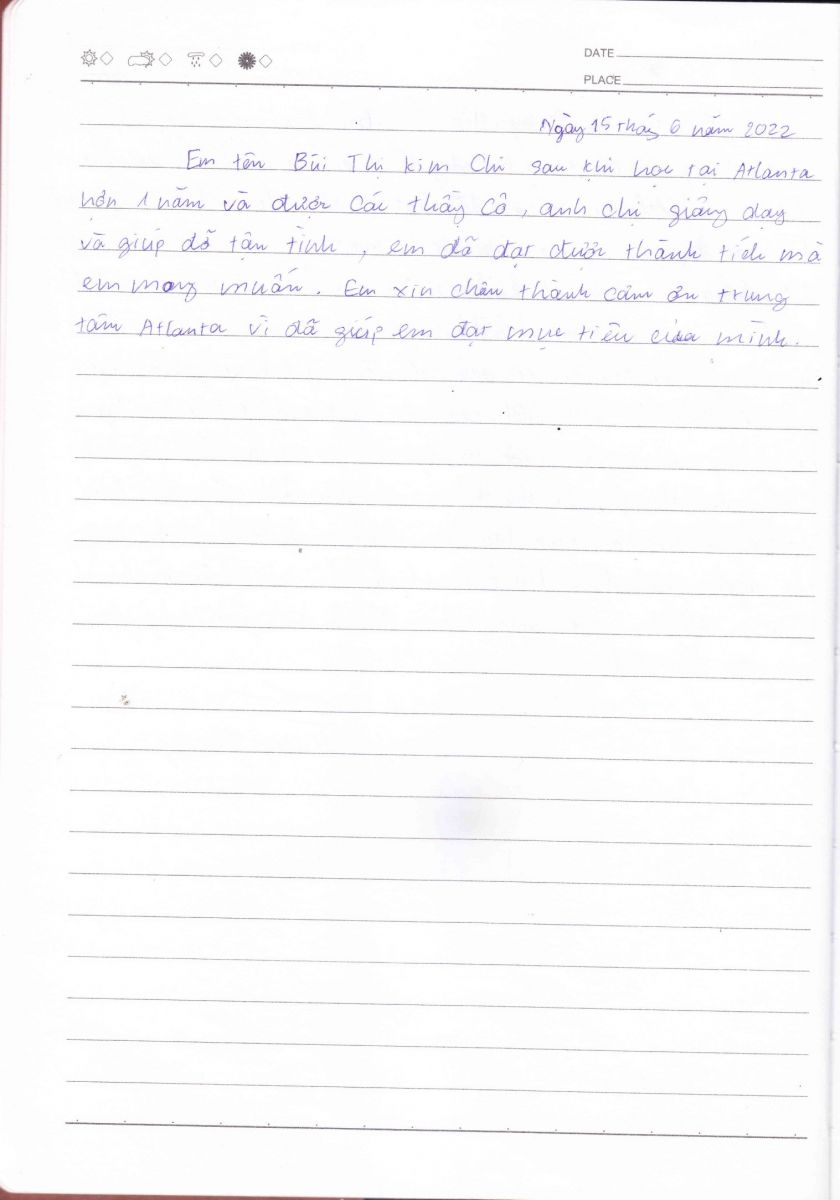 DATE
PLACE
Ngày 15 tháng 6 năm 2022
Em tên Bùi Thị Kim Chi sau khi học tại Atlanta
hơn 1 năm và được các thầy cô, anh chị giảng dạy
và giúp đỡ tận tình, em đã đạt được thành tích mà
em mong muốn. Em xin chân thành cảm ơn trung
tâm Atlanta vì đã giúp em đạt mục tiêu của mình.